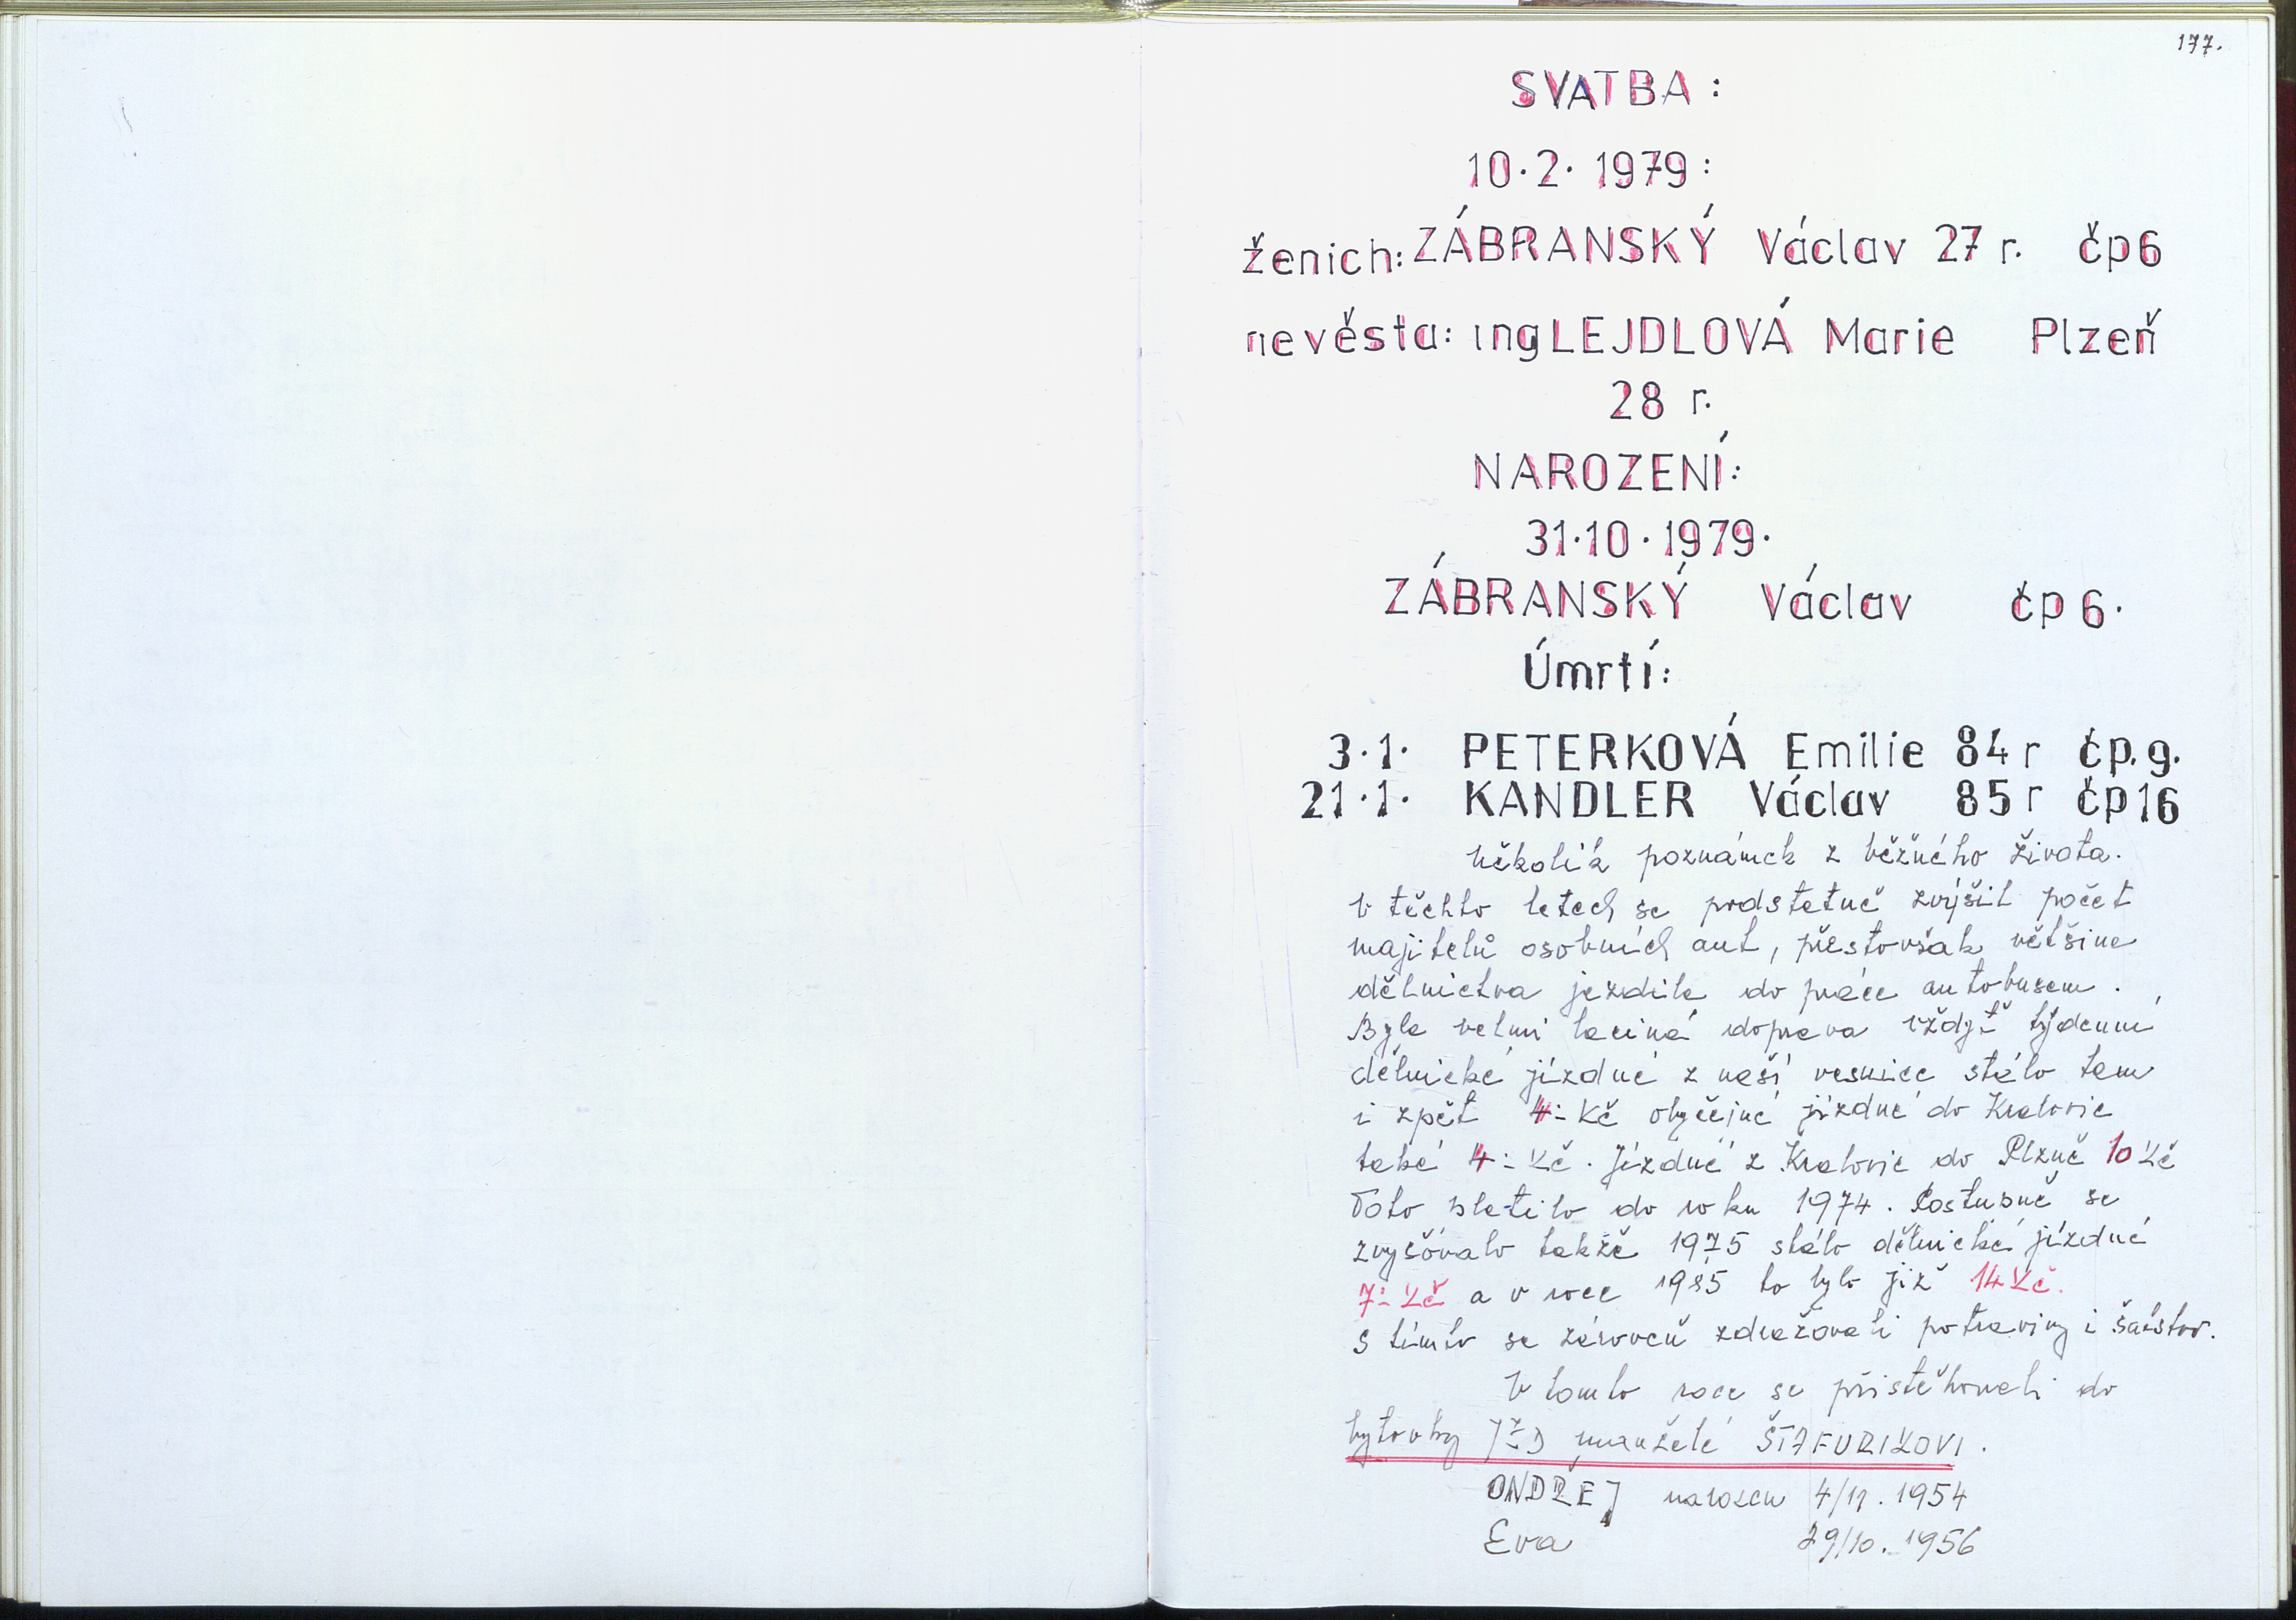 177.
SVATBA:
10.2. 1979:
ženich: ZÁBRANSKÝ Václav 27 r. čp 6
nevěsta: ing LEJDLOVÁ Marie Plzeň
28 r.
NAROZENÍ:
31.10.1979.
ZÁBRANSKÝ Václav čp 6.
Úmrtí:
3.1. PETERKOVÁ Emilie 84 r čp. 9.
21.1. KANDLER Václav 85 r čp 16
Několik poznámek z běžného života.
V těchto letech se podstatně zvýšil počet
majitelů osobních aut, přestovšak většina
dělnictva jezdila do práce autobusem.
Byla velmi laciná doprava vždyť týdenní
dělnické jízdné z naší vesnice stálo tam
i zpět 4:- Kč obyčejné jízdné do Kralovic
také 4:- Kč. Jízdné z Kralovic do Plzně 10 Kč
Toto platilo do roku 1974. Postupně se
zvyšovalo takže 1975 stálo dělnické jízdné
7:- Kč a v roce 1985 to bylo již 14 Kč.
S tímto se zároveň zdražovali potraviny i šatstvo.
V tomto roce se přistěhovali do
bytovky JZD manželé ŠTAFURIKOVI.
ONDŘEJ narozen 4/11. 1954
Eva 29/10. 1956